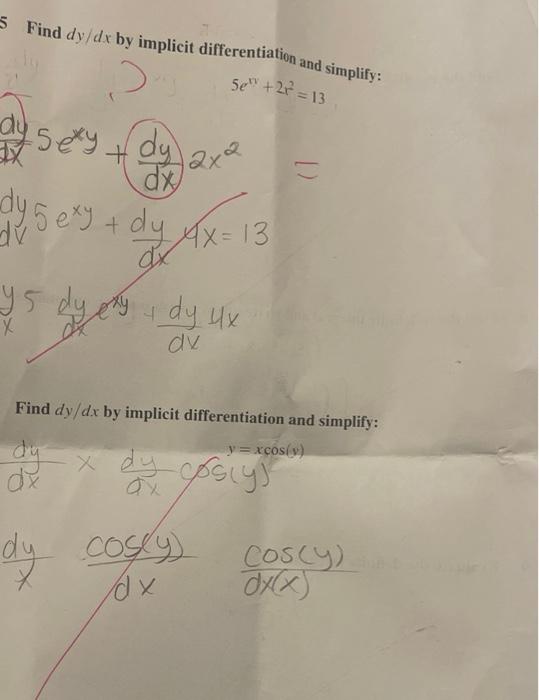 5 Find dy/dx by implicit differentiation and simplify:
5e^xy + 2x² = 13
dy/dx 5e^xy + dy/dx 2x² =
dy/dx 5e^xy + dy/dx 4x = 13
y/x 5 dy/dx e^xy + dy/dx 4x
Find dy/dx by implicit differentiation and simplify:
y = x cos(y)
dy/dx x dy/dx cos(y)
dy/x cos(y)/dx cos(y)/dx(x)